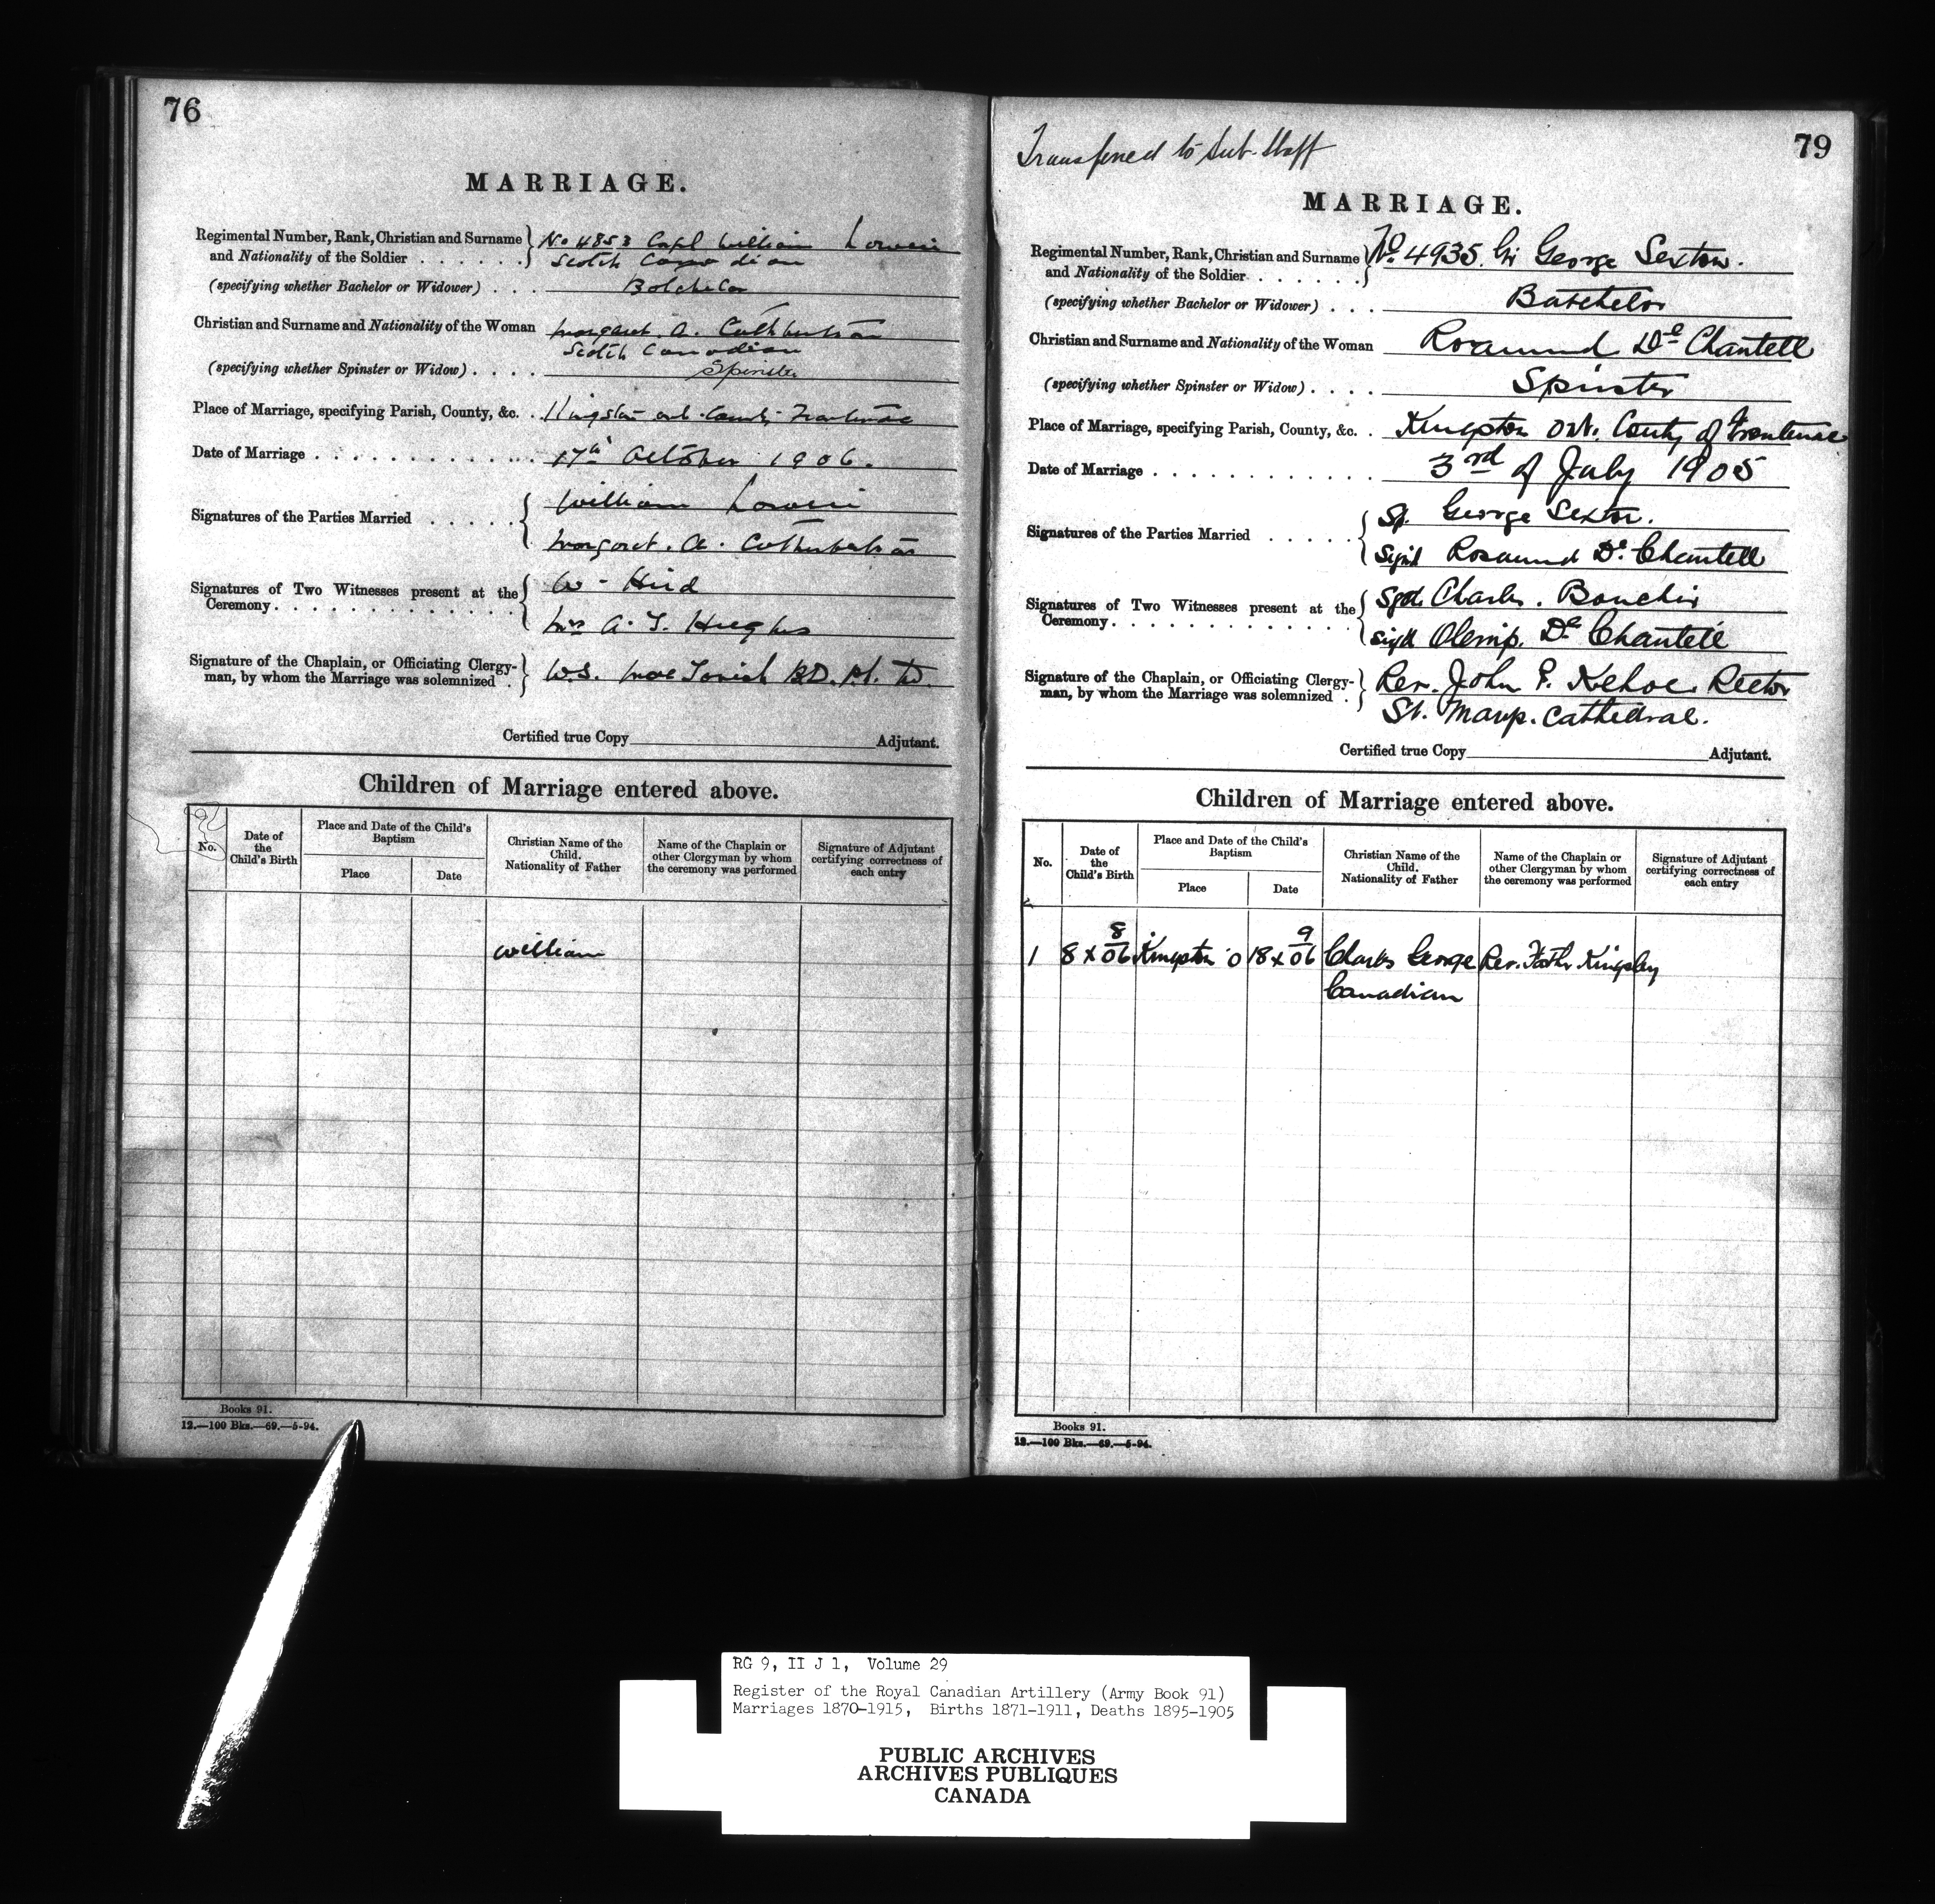 76
MARRIAGE.
Regimental Number, Rank, Christian and Surname No 4853 Corpl William
and Nationality of the Soldier . . . . . . Scotch Canadian
(specifying whether Bachelor or Widower) . . . Batchelor
Christian and Surname and Nationality of the Woman Margaret. A. Cuthbertson
Scotch Canadian
(specifying whether Spinster or Widow) . . . . Spinster
Place of Marriage, specifying Parish, County, &c. . Kingston Ont. County Frontenac
Date of Marriage . . . . . . . . . . . . 17th October 1906.
Signatures of the Parties Married . . . . . William
Margaret. A. Cuthbertson
Signatures of Two Witnesses present at the W - Hird
Ceremony. . . . . . . . . . . . .
Mrs A. T. Hughes
Signature of the Chaplain, or Officiating Clergy- W.S. MacTavish BD. Ph. D.
man, by whom the Marriage was solemnized .
Certified true Copy Adjutant.
Children of Marriage entered above.
No.
Date of the Child's Birth
Place and Date of the Child's Baptism
Place
Date
Christian Name of the Child. Nationality of Father
Name of the Chaplain or other Clergyman by whom the ceremony was performed
Signature of Adjutant certifying correctness of each entry
William
Books 91.
12.—100 Bks.—69.—5-94.
Transferred to Sub-Staff
79
MARRIAGE.
Regimental Number, Rank, Christian and Surname No. 4935. Gr George Sexton.
and Nationality of the Soldier . . . . . .
(specifying whether Bachelor or Widower) . . . Batchelor
Christian and Surname and Nationality of the Woman Rosamund De Chantell
(specifying whether Spinster or Widow) . . . . Spinster
Place of Marriage, specifying Parish, County, &c. . Kingston Ont. County of Frontenac
Date of Marriage . . . . . . . . . . . . 3rd of July 1905
Signatures of the Parties Married . . . . . George Sexton.
Sigd Rosamund De Chantell
Signatures of Two Witnesses present at the Sgd. Charles. Bouchir
Ceremony. . . . . . . . . . . . .
Sigd Olemip. De Chantell
Signature of the Chaplain, or Officiating Clergy- Rev. John P. Kehoe. Rector
man, by whom the Marriage was solemnized . St. Marys. Cathedral.
Certified true Copy Adjutant.
Children of Marriage entered above.
No.
Date of the Child's Birth
Place and Date of the Child's Baptism
Place
Date
Christian Name of the Child. Nationality of Father
Name of the Chaplain or other Clergyman by whom the ceremony was performed
Signature of Adjutant certifying correctness of each entry
1 8 x 8/06 Kingston O 18 x 9/06 Charles George Rev. Father Kingsley
Canadian
Books 91.
12.—100 Bks.—69.—5-94.
RG 9, II J 1, Volume 29
Register of the Royal Canadian Artillery (Army Book 91)
Marriages 1870-1915, Births 1871-1911, Deaths 1895-1905
PUBLIC ARCHIVES
ARCHIVES PUBLIQUES
CANADA